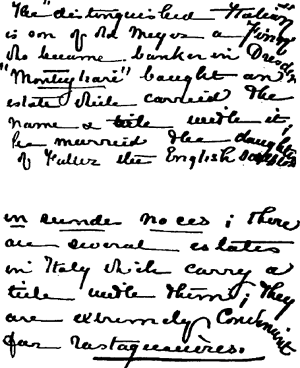 The "distinguished Italian"
is on of old Meyer a
who became banker in Dresden
"Montigliari" bought an
estate which carried the
name & title with it;
he married the daughter
of Fuller the English
in secunde noces; there
are several estates
in Italy which carry a
title with them; they
are extremely Convenient
for rastaquouères.